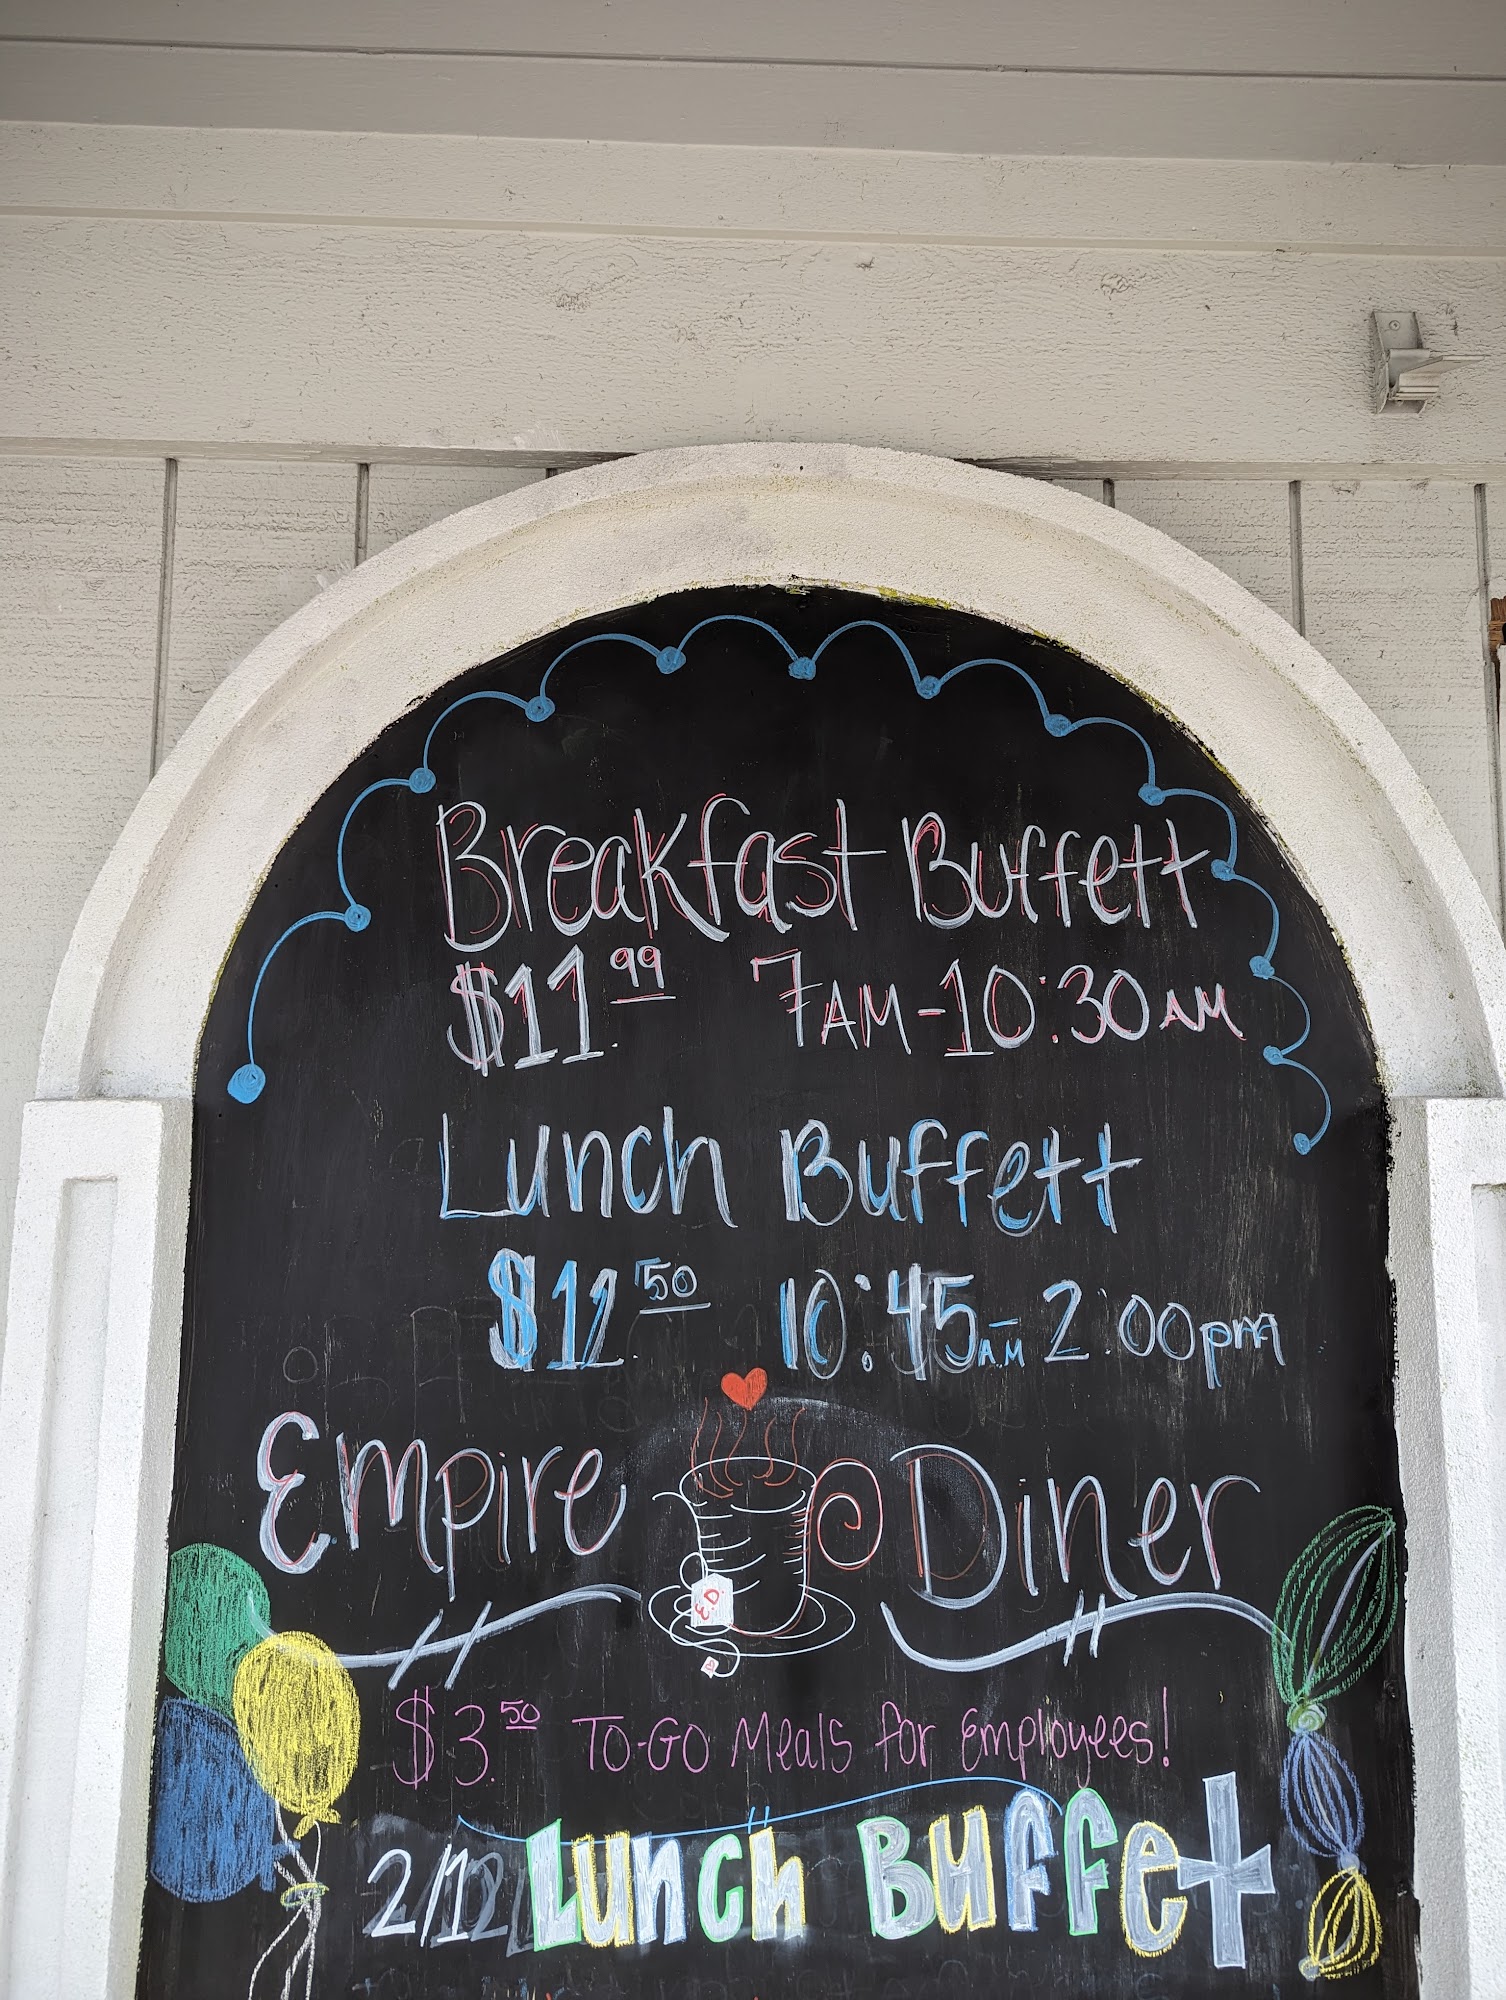 Breakfast Buffett
$11.99 7AM-10:30AM
Lunch Buffett
$12.50 10:45AM-2:00pm
Empire Diner
E.D.
$3.50 TO-GO Meals for Employees!
2/12 Lunch Buffet